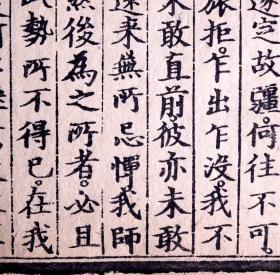 定故疆。何往不可
旅拒。乍出乍没。我不
未敢直前。彼亦未敢
遠来無所忌憚。我師
然後為之所者。必且
勢所不得巳。在我